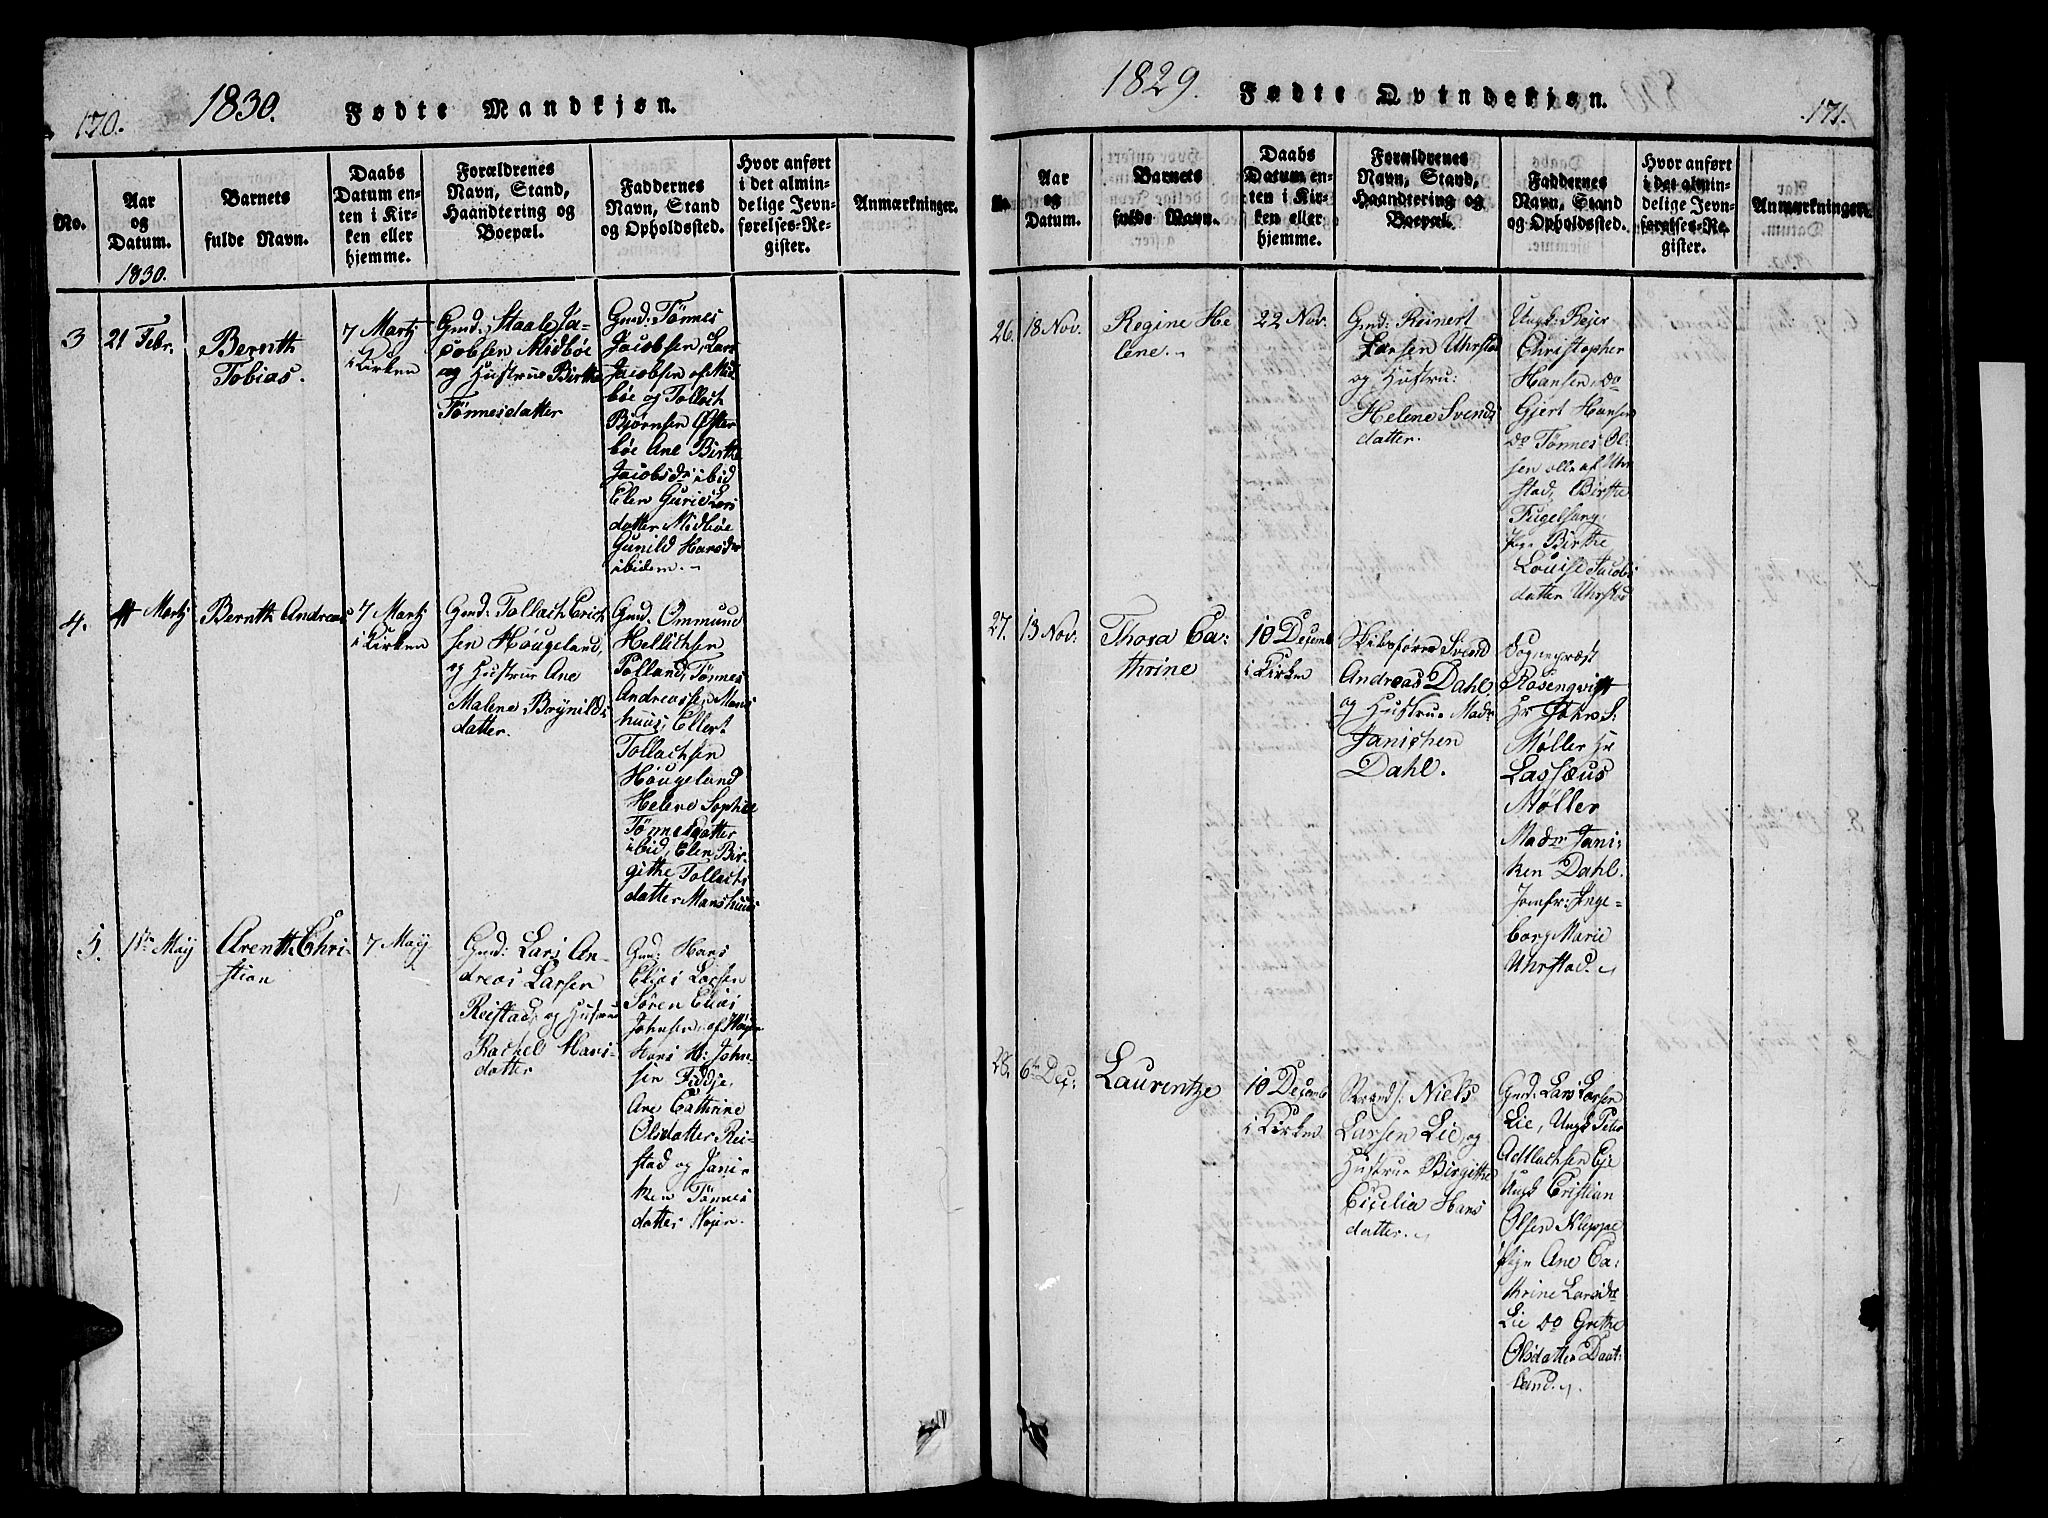 170.
1830.
Fødte Mandkjøn.
No.
Aar
og
Datum.
1830.
Barnets
fulde Navn.
Daabs
Datum en-
ten i Kir-
ken eller
hjemme.
Forældrenes
Navn, Stand,
Haandtering og
Boepæl.
Faddernes
Navn, Stand
og Opholdssted.
Hvor anført
i det almin-
delige Jevn-
førelses-Re-
gister.
Anmærkninger.
3
21 Febr.
Bernth
Tobias.
7 Martj
i Kirken
Gmd: Staale Ja-
cobsen Midbøe
og Hustrue Birthe
Tønnesdatter
Gmd: Tønnes
Jacobsen, Lars
Jacobsen af Mid
bøe og Tollach
Bjørnsen Øster
bøe Ane Birthe
Jacobsdr ibid
Elen Gurie Lars
datter Midbøe
Gunild Hansdr
ibidem.
4.
Martj
Bernth Andreas
7 Martj
i Kirken
Gmd: Tollach Erich
sen Høugeland,
og Hustrue Ane
Malene Brynilds
datter.
Gmd. Ommund
Hellichsen
Polland, Tønnes
Andreassen Mons
huus, Ellert
Tollachsen
Høugeland
Helene Sophie
Tønnesdatter
ibid, Elen Bir-
githe Tollachs
datter Monshuus
5.
1ste Maij
Arenth Chri-
stian
7 Maij
Gmd: Lars An-
dreas Larsen
Reistad, og Hustrue
Rachel Hans-
datter
Gmd: Hans
Elias Larsen
Søren Elias
Johnsen af
Hans H: John-
sen Fidje,
Ane Cathrine
Olsdatter Rei-
stad og Jani-
ken Tønnes
datter
1829.
Fødte Qvindekjøn.
171.
No.
Aar
og
Datum.
Barnets
fulde Navn.
Daabs
Datum en-
ten i Kir-
ken eller
hjemme.
Forældrenes
Navn, Stand,
Haandtering og
Boepæl.
Faddernes
Navn, Stand
og Opholdssted.
Hvor anført
i det almin-
delige Jevn-
førelses-Re-
gister.
Anmærkninger.
26.
18 Nov.
Regine He
lene.
22 Nov.
Gmd: Reinert
Larsen Uhrstad
og Hustru:
Helene Svends
datter.
Ungk: Rejer
Christopher
Hansen, do
Gjert Hansen
do Tønnes Ol-
sen alle af Uhr
stad, Birthe
Fugelsang,
Birthe
Louise Jacobs
datter Uhrstad
27.
13 Nov:
Thora Ca-
thrine
10 Decemb
i Kirken
Skibsfører Svend
Andreas Dahl,
og Hustrue Madm
Janichen
Dahl.
Sognepræst
Rosenqvist
Hr John S:
Møller Hr
Lassæus
Møller
Madm Jani-
ken Dahl.
Jomfr: Inge-
borg Marie
Uhrstad.
28.
6te Dec:
Laurentze
10 Decemb
i Kirken
Strands. Niels
Larsen Lie, og
Hustrue Birgitthe
Cicelia Hans
datter.
Gmd: Lars Larsen
Lie, Ungk Peter
Adtlachsen Eje
Ungk Cristian
Olsen Kleppe
Pige Ane Ca-
thrine Larsdtr
Lie do Grethe
Olsdatter Daat-
land.